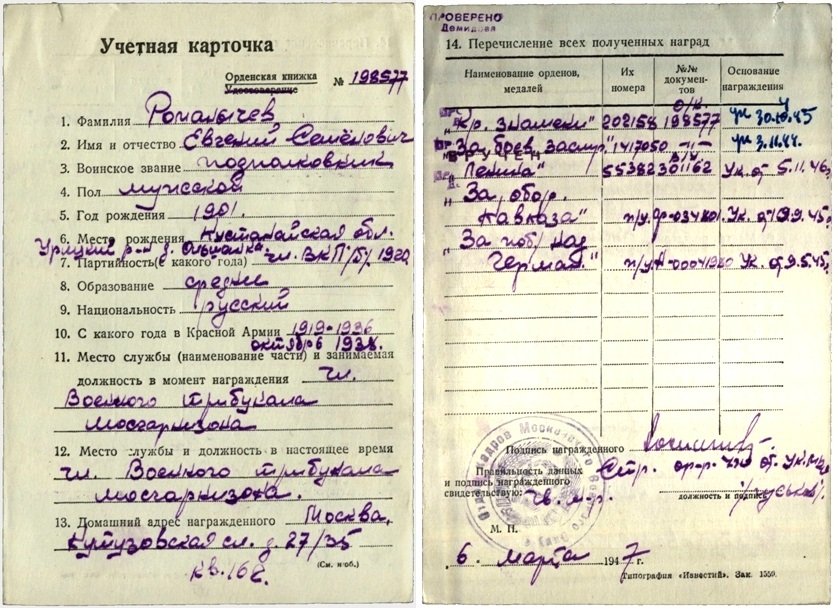 Учетная карточка
Орденская книжка
Удостоверение
№ 198577
1. Фамилия Романычев
2. Имя и отчество Евгений Семёнович
3. Воинское звание подполковник
4. Пол мужской
5. Год рождения 1901.
6. Место рождения Кустанайская обл.
Урицкий р-н д.
7. Партийность(с какого года) чл. ВКП/б/ 1920
8. Образование среднее
9. Национальность русский
10. С какого года в Красной Армии 1919-1936
октябрь 1938.
11. Место службы (наименование части) и занимаемая
должность в момент награждения чл.
Военного трибунала
мосгарнизона
12. Место службы и должность в настоящее время
чл. Военного трибунала
мосгарнизона.
13. Домашний адрес награжденного Москва,
Кутузовская сл. д 27/35
кв. 168.
(См. н/об.)
ПРОВЕРЕНО
Демидова
14. Перечисление всех полученных наград
Наименование орденов, медалей
Их номера
№№ документов
Основание награждения
о/к.
"Кр. Знамени" 202158 198577 ук 30.10.45
"За боев. заслуг" 1417050 –"– ук 3.11.44.
ВРУЧЕН
"Ленина" 55382 301162 Ук. от 5.11.46
"За обор.
Кавказа" п/у Ф-034801 Ук. от 9.9.45
"За поб/ над
Герман." п/у А-00041920 Ук. от 9.5.45
Подпись награжденного
Правильность данных
и подпись награжденного
свидетельствую:
Ст.
должность и подпись
М. П.
6. марта 1947 г.
Типография «Известий». Зак. 1559.